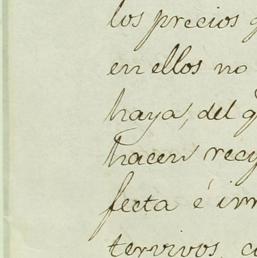 los precios
en ellos no
haya, del q
hacen recy
fecta é irr
tervivos, c